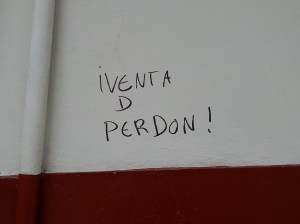 ¡VENTA
D
PERDON!